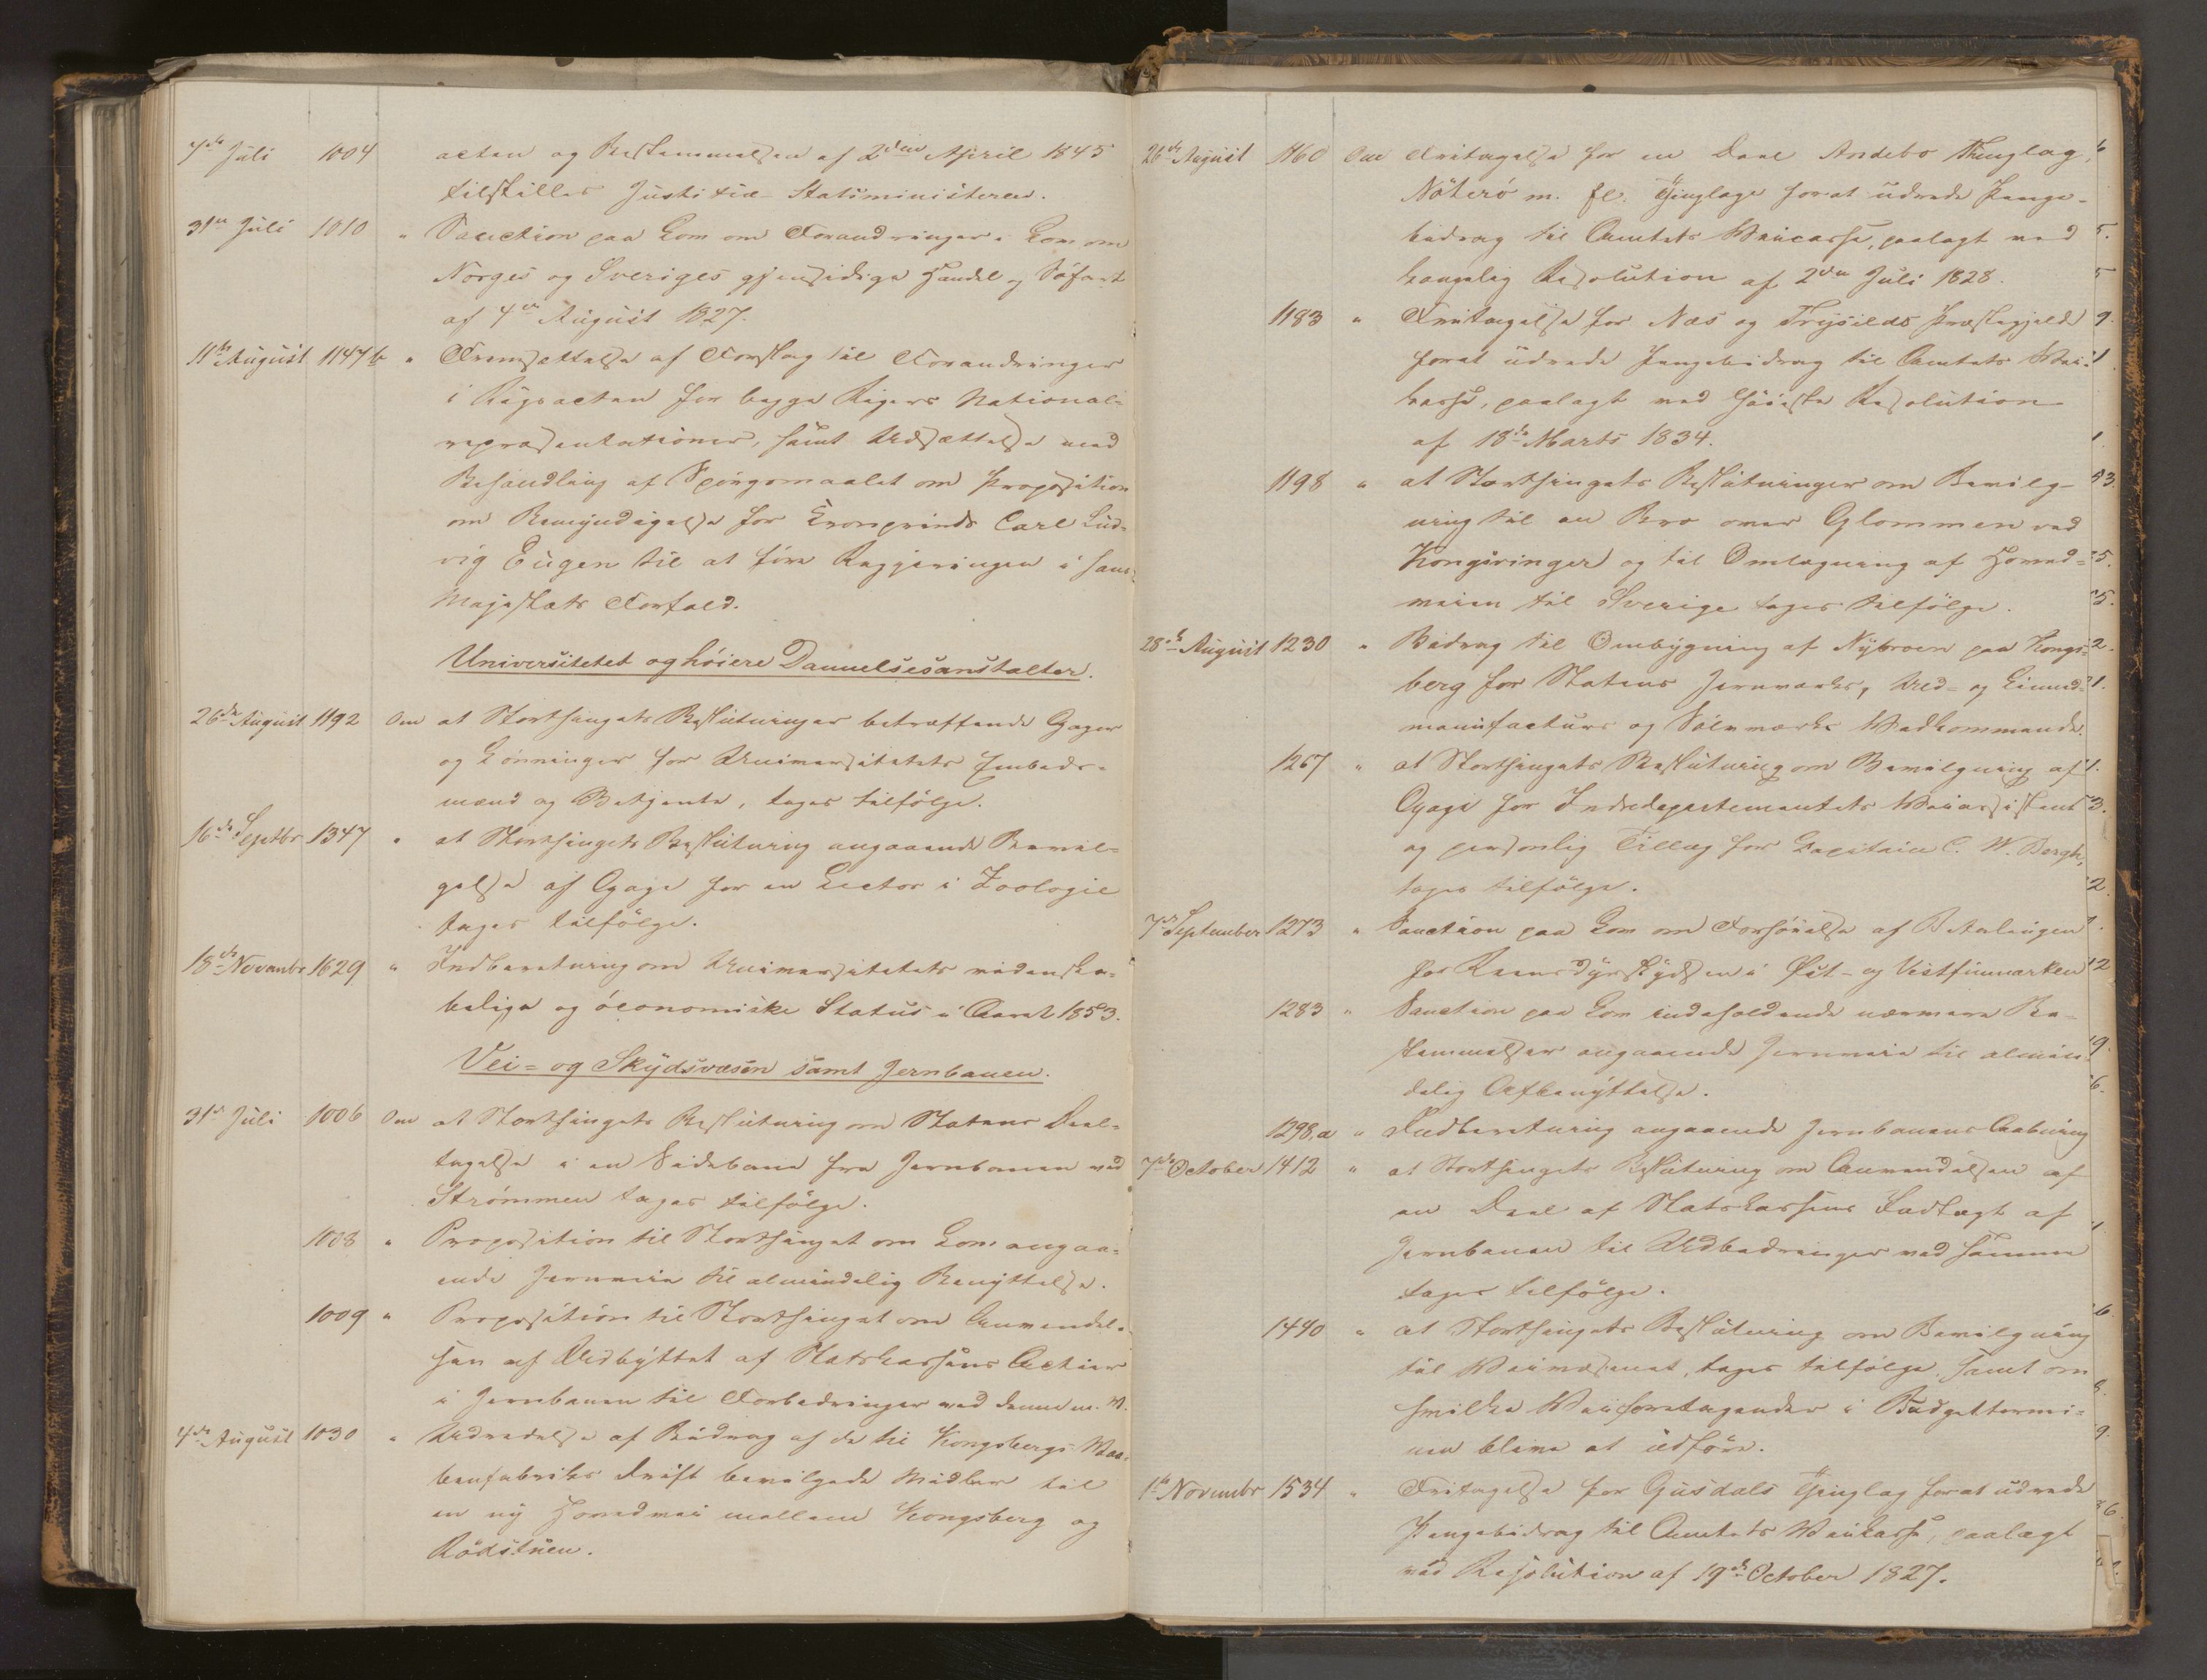 7de Juli 1004 acten og Bestemmelsen af 2den April 1845
tilstilles Justitie-Statsministeren.
31te Juli 1010 " Sanction paa Lov om Forandringer i Lov om
Norges og Sveriges gjensidige Handel og Søfart
af 4de August 1827.
11te August 1147b " Fremsættelse af Forslag til Forandringer
i Rigsacten for begge Rigers National-
repræsentationer, samt Udsættelse med
Behandling af Spørgsmaalet om Proposition
om Bemyndigelse for Kronprinds Carl Lud-
vig Eugen til at føre Regjeringen i Hans
Majestæts Forfald.
Universitetet og høiere Dannelsesanstalter.
26de August 1192 Om at Storthingets Beslutninger betræffende Gager
og Lønninger for Universitetets Embeds-
mænd og Betjente, tages tilfølge.
16de Septbr 1347 " at Storthingets Beslutning angaaende Bevil-
gelse af Gage for en Lector i Zoologie
tages tilfølge.
18de Novembr 1629 " Indberetning om Universitetets videnska-
belige og øconomiske Status i Aaret 1853.
Vei- og Skydsvæsen samt Jernbanen.
31te Juli 1006 Om at Storthingets Beslutning om Statens Deel-
tagelse i en Sidebane fra Jernbanen ved
Strømmen tages tilfølge.
1008 " Proposition til Storthinget om Lov angaa-
ende Jernveie til almindelig Benyttelse.
1009 " Proposition til Storthinget om Anvendel-
sen af Udbyttet af Statskassens Actier
i Jernbanen til Forbedringer ved denne m. V.
4de August 1030 " Udredelse af Bidrag af de til Kongsbergs Vaa-
benfabriks Drift bevilgede Midler til
en ny Hovedvei mellem Kongsberg og
Rødstuen.
26de August 1160 Om Fritagelse for en Deel Andebo Thinglag,
Nøterø m. fl. Thinglage forat udrede Penge-
bidrag til Amtets Veicasse, paalagt ved
kongelig Resolution af 2den Juli 1828.
1183 " Fritagelse for Næs og Trysilds Præstegjeld
forat udrede Pengebidrag til Amtets Vei-
kasse, paalagt ved Høieste Resolution
af 18de Marts 1834.
1198 " at Storthingets Beslutninger om Bevilg-
ning til en Bro over Glommen ved
Kongsvinger og til Omlægning af Hoved-
veien til Sverige tages tilfølge.
28de August 1230 " Bidrag til Ombygning af Nybroen paa Kongs-
berg for Statens Jernværks, Uld- og Linned-
manufacturs og Sølvværks Vedkommende.
1267 " at Storthingets Beslutning om Bevilgning af
Gage for Indredepartementets Veiassistent
og personlig Tillæg for Capitain C. W. Bergh,
tages tilfølge.
7de September 1273 " Sanction paa Lov om Forhøielse af Betalingen
for Reensdyrskydsen i Øst- og Vestfinmarken
1283 " Sanction paa Lov indeholdende nærmere Be-
stemmelser angaaende Jernveie til almin-
delig Afbenyttelse.
1298,a " Indberetning angaaende Jernbanens Aabning
7de October 1412 " at Storthingets Beslutning om Anvendelsen af
en Deel af Statskassens Indtægt af
Jernbanen til Udbedringer ved samme
tages tilfølge.
1440 " at Storthingets Beslutning om Bevilgning
til Veivæsenet, tages tilfølge, samt om
hvilke Veiforetagender i Budgettermi-
nen blive at udføre.
1ste Novembr 1534 " Fritagelse for Gusdals Thinglag forat udrede
Pengebidrag til Amtets Veikasse, paalagt
ved Resolution af 19de October 1827.